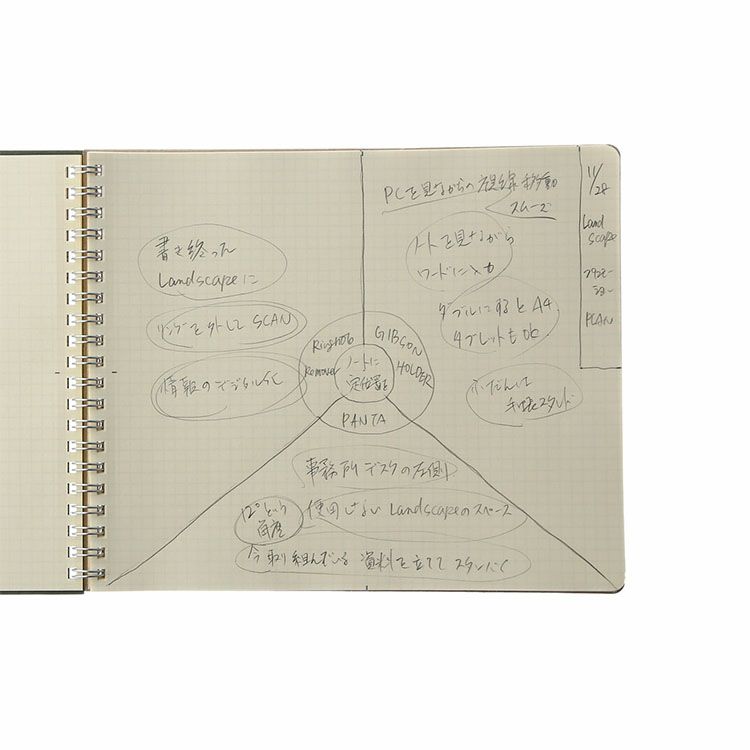 書き終った
Landscapeに
リングを外して SCAN
情報のデジタル化
PCを見ながらの視線移動
スムーズ
ノートを見ながら
ワードに入力
ダブルにするとA4
タブレットもOK
ふだんは
手帳スタンド
11/28
Land
scape
PLAN
Remover
GIBSON
HOLDER
PANTA
ノートに
定位置を
事務所デスクの左側
12°という
角度
使用しない Landscapeのスペース
今取り組んでいる 資料を立てて スタンバイ